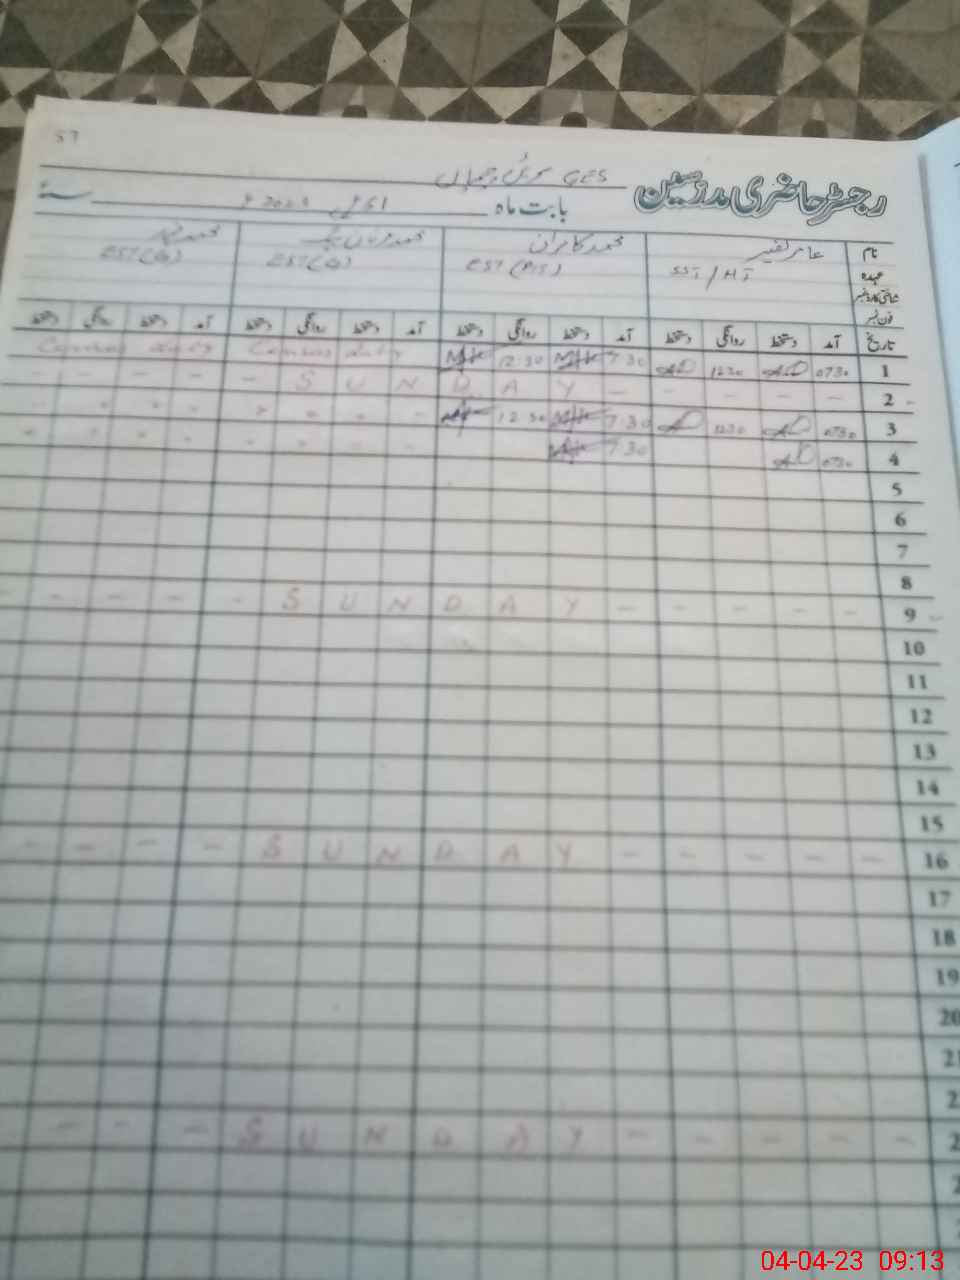 57
رجسٹر حاضری مدرسین GES
بابت ماہ اپریل 2023ء سنہ
نام عامر محمد کامران محمد محمد
عہدہ SST/HT EST(PTI) EST(G) EST(G)
شناختی کارڈ نمبر
فون نمبر
تاریخ آمد دستخط روانگی دستخط آمد دستخط روانگی دستخط آمد دستخط روانگی دستخط آمد دستخط روانگی دستخط
1 0730 1230 7:30 12:30 Census duty Census duty
2 - - - - - S U N D A Y - - - - -
3 0730 1230 7:30 12:30 " " " "
4 0730 7:30 " " " "
5
6
7
8
9 - - - - - S U N D A Y - - - - -
10
11
12
13
14
15
16 - - - - - S U N D A Y - - - -
17
18
19
20
- - - - - S U N D A Y - - -
04-04-23 09:13